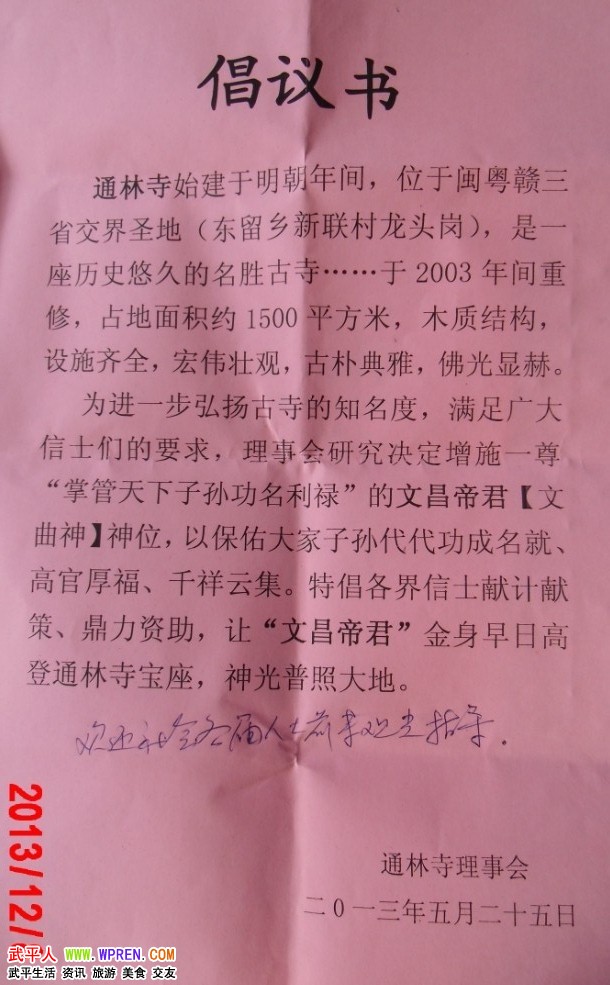 倡议书
通林寺始建于明朝年间，位于闽粤赣三
省交界圣地（东留乡新联村龙头岗），是一
座历史悠久的名胜古寺……于 2003 年间重
修，占地面积约 1500 平方米，木质结构，
设施齐全，宏伟壮观，古朴典雅，佛光显赫。
为进一步弘扬古寺的知名度，满足广大
信士们的要求，理事会研究决定增施一尊
“掌管天下子孙功名利禄”的文昌帝君【文
曲神】神位，以保佑大家子孙代代功成名就、
高官厚福、千祥云集。特倡各界信士献计献
策、鼎力资助，让“文昌帝君”金身早日高
登通林寺宝座，神光普照大地。
欢迎社会各届人士前来观光指导.
通林寺理事会
二0一三年五月二十五日
2013/12/
武平人 www.WPREN.COM
武平生活 资讯 旅游 美食 交友